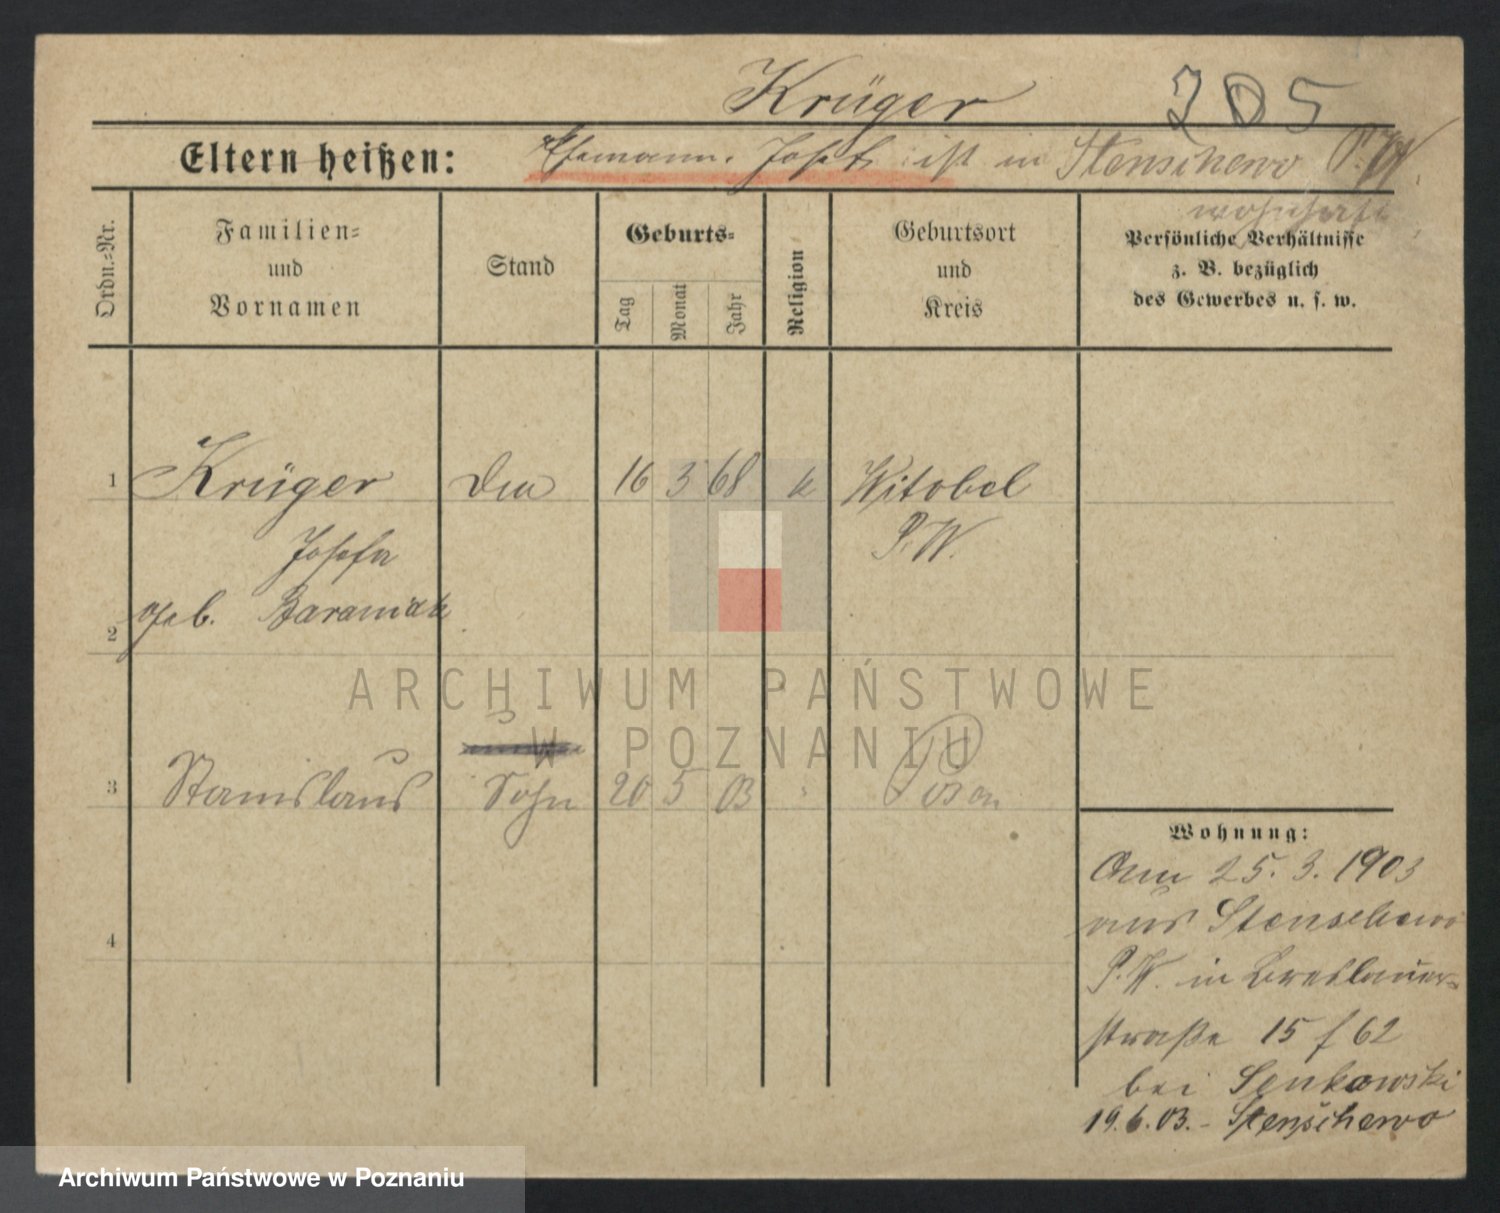 Krüger 205
Eltern heißen: Ehemann Josef ist in Stenschewo P. W.
wohnhaft
Ordn.-Nr.
Familien-
und
Vornamen
Stand
Geburts-
Tag
Monat
Jahr
Religion
Geburtsort
und
Kreis
Persönliche Verhältnisse
z. B. bezüglich
des Gewerbes u. s. w.
1 Krüger 16 3 68 k Witobel
Josefa P. W.
geb. Baraniak
2
3 Stanislaus Sohn 20 5 03 Posen
4
Wohnung:
Am 25. 3. 1903
aus Stenschewo
P. W. in Breslauer-
straße 15 f 62
bei Senkowski
19. 6. 03. - Stenschewo
ARCHIWUM PAŃSTWOWE
W POZNANIU
Archiwum Państwowe w Poznaniu